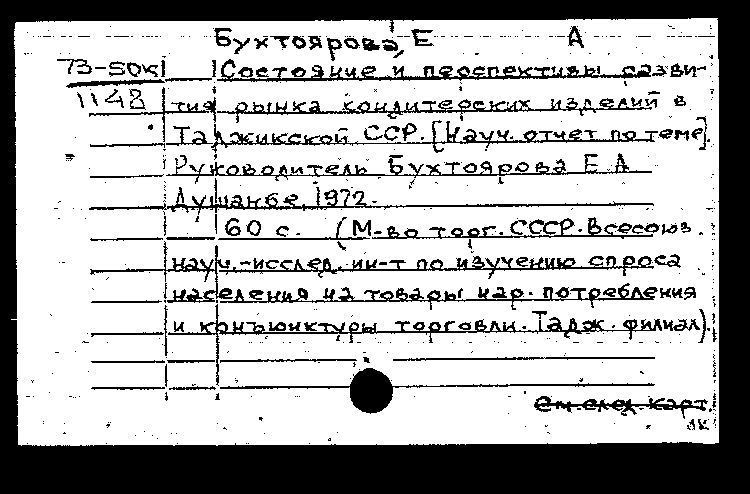 Бухтоярова, Е А
73-50К Состояние и перспективы разви-
1148 тия рынка кондитерских изделий в
Таджикской ССР. [Науч. отчет по теме].
Руководитель Бухтоярова Е А
Душанбе, 1972.
60 с. (М-во торг. СССР. Всесоюз.
науч.-исслед. ин-т по изучению спроса
населения на товары нар. потребления
и конъюнктуры торговли. Тадж. филиал).
См. след. карт.